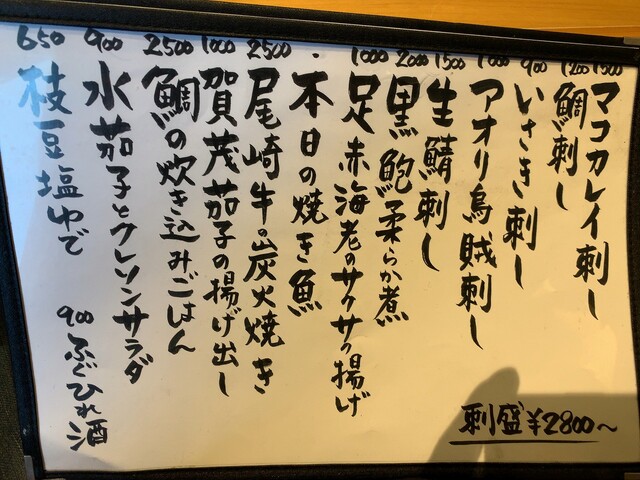 1500 マコカレイ刺し
1200 鯛刺し
900 いさき刺し
1000 アオリ烏賊刺し
1500 生鯖刺し
2000 黒鮑柔らか煮
1000 足赤海老のサクサク揚げ
・ 本日の焼き魚
2500 尾崎牛の炭火焼き
1000 賀茂茄子の揚げ出し
2500 鯛の炊き込みごはん
900 水茄子とクレソンサラダ
650 枝豆塩ゆで
900 ふぐひれ酒
刺盛¥2800〜